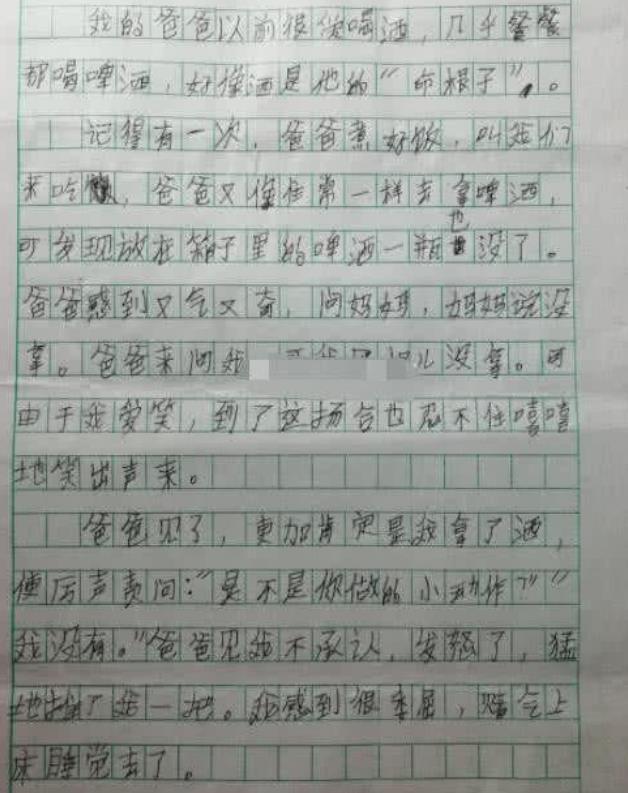 我的爸爸以前很僖喝酒，几乎餐餐
都喝啤酒，好像酒是他的“命根子”。
记得有一次，爸爸煮好饭，叫我们
来吃，爸爸又像往常一样去拿啤酒，
可发现放在箱子里的啤酒一瓶也没了。
爸爸感到又气又奇，问妈妈，妈妈说没
拿。爸爸来问我 儿没拿。可
由于我爱笑，到了这场合也忍不住嘻嘻
地笑出声来。
爸爸见了，更加肯定是我拿了酒，
便厉声责问：“是不是你做的小动作？”“
我没有。”爸爸见我不承认，发怒了，猛
地了我一把。我感到很委屈，赌气上
床睡觉去了。